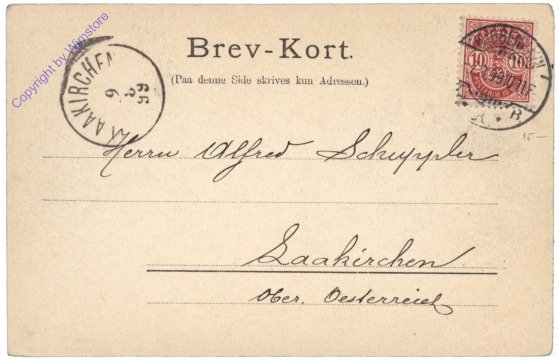 Copyright by Wimstore
Brev-Kort.
(Paa denne Side skrives kun Adressen.)
LAAKIRCHEN
9 8 99
10 10
Herrn Alfred Schuppler
Laakirchen
Ober. Oesterreich
15-